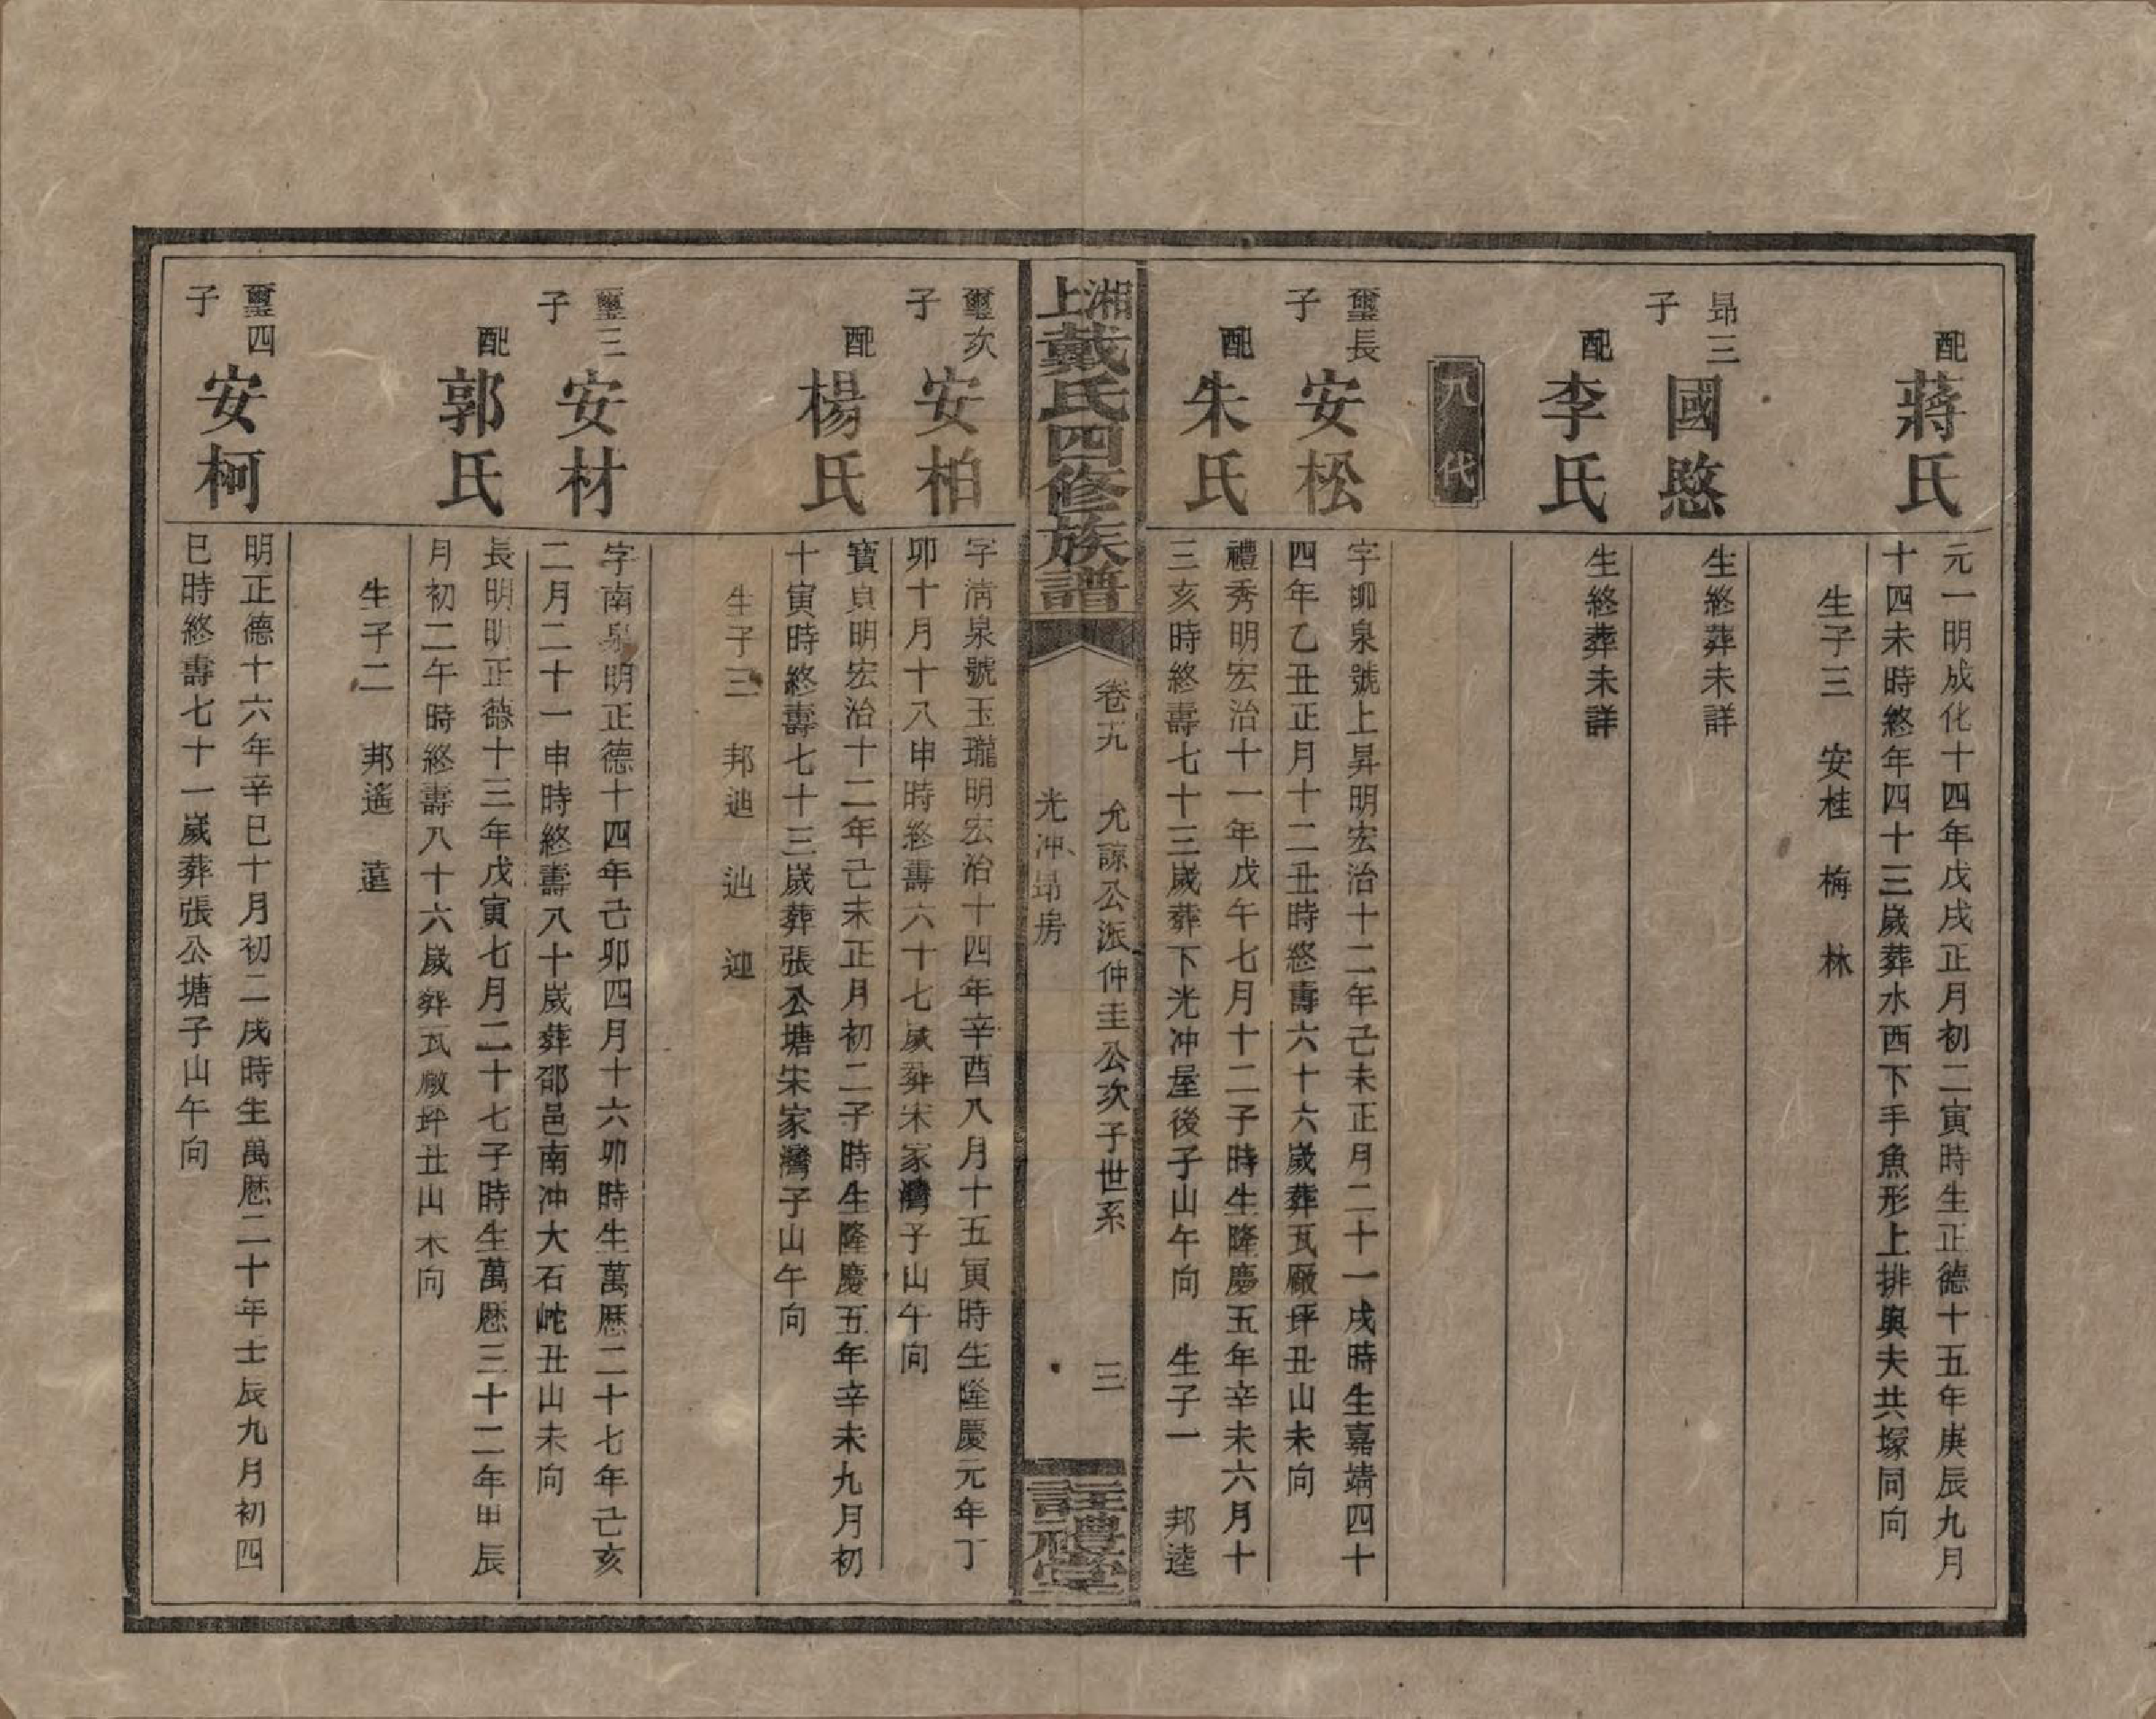 配
蔣氏
元一明成化十四年戊戌正月初二寅時生正德十五年庚辰九月
十四未時終年四十三歲葬水西下手魚形上排與夫共塚同向
生子三　安桂　梅　林
昻三
子
國愍
生終葬未詳
配
李氏
生終葬未詳
九代
璽長
子
安松
字卿泉號上昇明宏治十二年己未正月二十一戌時生嘉靖四十
四年乙丑正月十二丑時終壽六十六歲葬瓦廠坪丑山未向
配
朱氏
禮秀明宏治十一年戊午七月十二子時生隆慶五年辛未六月十
三亥時終壽七十三歲葬下光冲屋後子山午向　生子一　邦逵
湘上戴氏四修族譜
卷光　允諒公派仲圭公次子世系　三
光冲昻房
註禮堂
璽次
子
安柏
字清泉號玉瓏明宏治十四年辛酉八月十五寅時生隆慶元年丁
卯十月十八申時終壽六十七歲葬宋家灣子山午向
配
楊氏
寶貞明宏治十二年己未正月初二子時生隆慶五年辛未九月初
十寅時終壽七十三歲葬張公塘宋家灣子山午向
生子三　邦迪　辿　迎
璽三
子
安材
字南泉明正德十四年己卯四月十六卯時生萬歷二十七年己亥
二月二十一申時終壽八十歲葬邵邑南冲大石岮丑山未向
配
郭氏
長明明正德十三年戊寅七月二十七子時生萬歷三十二年甲辰
月初二午時終壽八十六歲葬瓦廠坪丑山未向
生子二　邦遙　遠
璽四
子
安柯
明正德十六年辛巳十月初二戌時生萬歷二十年壬辰九月初四
巳時終壽七十一歲葬張公塘子山午向